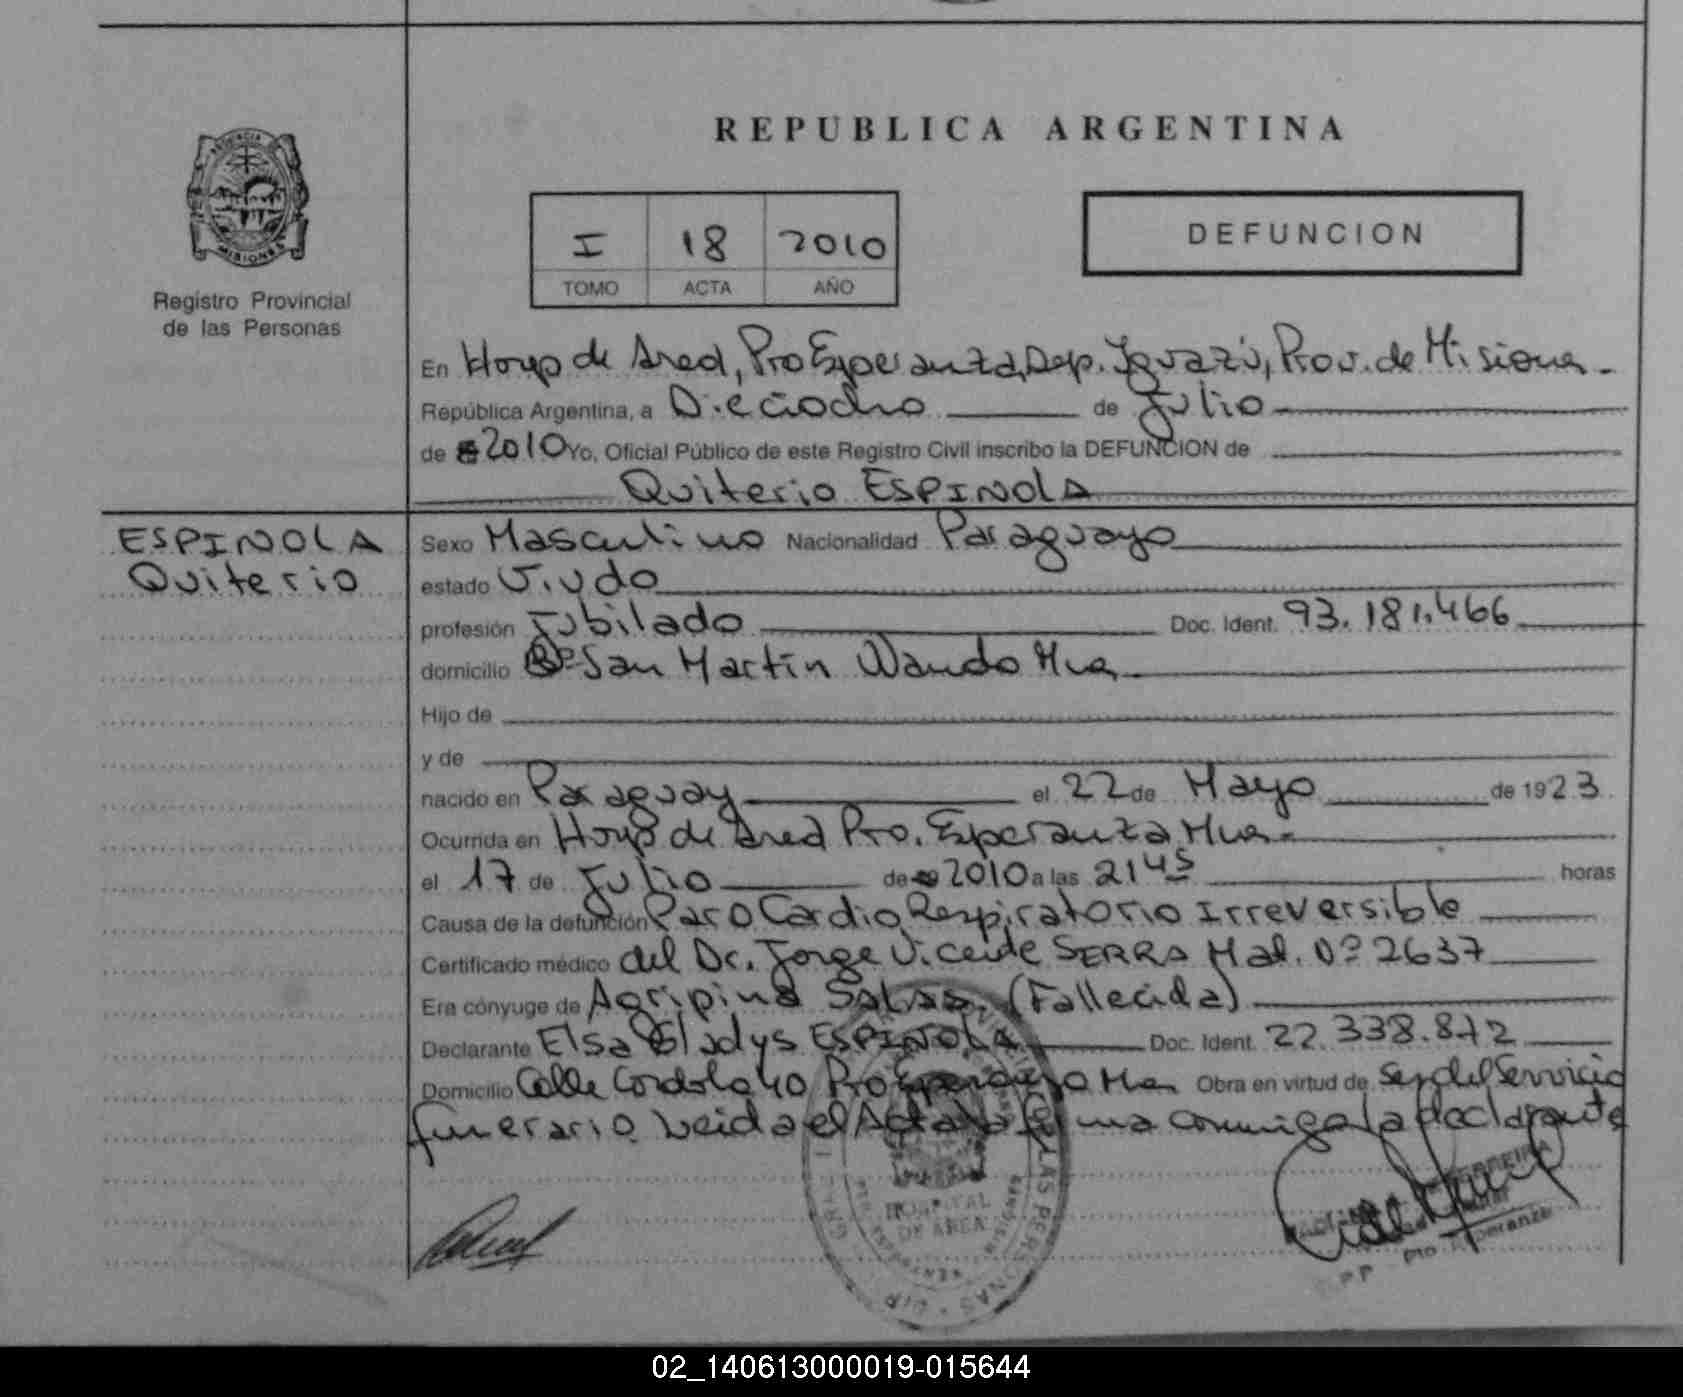 REPUBLICA ARGENTINA
PROVINCIA DE
MISIONES
Registro Provincial
de las Personas
I 18 2010
TOMO ACTA AÑO
DEFUNCION
En Hosp de Area, Pto Esperanza, Dep. Iguazú, Prov. de Misiones.
República Argentina, a Dieciocho de Julio
de 2010 Yo, Oficial Público de este Registro Civil inscribo la DEFUNCION de
Quiterio ESPINOLA
ESPINOLA
Quiterio
Sexo Masculino Nacionalidad Paraguayo
estado Viudo
profesión Jubilado Doc. Ident. 93.181.466
domicilio Bº San Martín Wanda Mnes
Hijo de
y de
nacido en Paraguay el 22 de Mayo de 1923
Ocurrida en Hosp de Area Pto. Esperanza Mnes.
el 17 de Julio de 2010 a las 21 45 horas
Causa de la defunción Paro Cardio Respiratorio Irreversible
Certificado médico del Dr. Jorge Vicente SERRA Mat. Nº 2637
Era cónyuge de Agripina Salas (Fallecida)
Declarante Elsa Gladys ESPINOLA Doc. Ident. 22.338.872
Domicilio Calle Cordoba 40 Pto Esperanza Mnes Obra en virtud de Ser del Servicio
funerario. Leida el Acta la firma conmigo la declarante
HOSPITAL
DE AREA
FERREIRA
Pto Esperanza
02_140613000019-015644